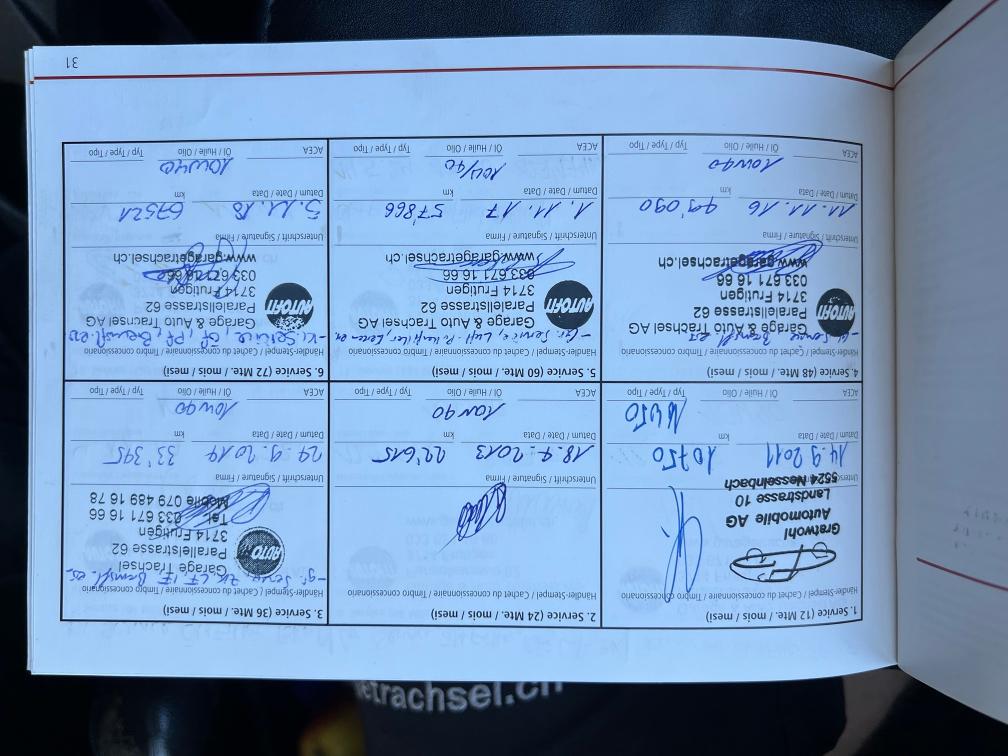 1. Service (12 Mte. / mois / mesi)
Händler-Stempel / Cachet du concessionnaire / Timbro concessionario
Gratwohl
Automobile AG
Landstrasse 10
5524 Nesselnbach
Unterschrift / Signature / Firma
14.9.2011 10750
Datum / Date / Data km
ACEA Öl / Huile / Olio Typ / Type / Tipo
2. Service (24 Mte. / mois / mesi)
Händler-Stempel / Cachet du concessionnaire / Timbro concessionario
Unterschrift / Signature / Firma
18.7.2013 22'615
Datum / Date / Data km
10w40
ACEA Öl / Huile / Olio Typ / Type / Tipo
3. Service (36 Mte. / mois / mesi)
Händler-Stempel / Cachet du concessionnaire / Timbro concessionario
AUTO
Garage Trachsel
Parallelstrasse 62
3714 Frutigen
Tel. 033 671 16 66
Mobile 079 489 16 78
Unterschrift / Signature / Firma
24.9.2014 33'395
Datum / Date / Data km
10w40
ACEA Öl / Huile / Olio Typ / Type / Tipo
4. Service (48 Mte. / mois / mesi)
Händler-Stempel / Cachet du concessionnaire / Timbro concessionario
AUTOFIT
Garage & Auto Trachsel AG
Parallelstrasse 62
3714 Frutigen
033 671 16 66
www.garagetrachsel.ch
Unterschrift / Signature / Firma
11.11.16 49'090
Datum / Date / Data km
10w40
ACEA Öl / Huile / Olio Typ / Type / Tipo
5. Service (60 Mte. / mois / mesi)
Händler-Stempel / Cachet du concessionnaire / Timbro concessionario
AUTOFIT
Garage & Auto Trachsel AG
Parallelstrasse 62
3714 Frutigen
033 671 16 66
www.garagetrachsel.ch
Unterschrift / Signature / Firma
1.11.17 57'866
Datum / Date / Data km
10W40
ACEA Öl / Huile / Olio Typ / Type / Tipo
6. Service (72 Mte. / mois / mesi)
Händler-Stempel / Cachet du concessionnaire / Timbro concessionario
AUTOFIT
Garage & Auto Trachsel AG
Parallelstrasse 62
3714 Frutigen
033 671 16 66
www.garagetrachsel.ch
Unterschrift / Signature / Firma
3.11.18 67521
Datum / Date / Data km
10W40
ACEA Öl / Huile / Olio Typ / Type / Tipo
31
etrachsel.ch